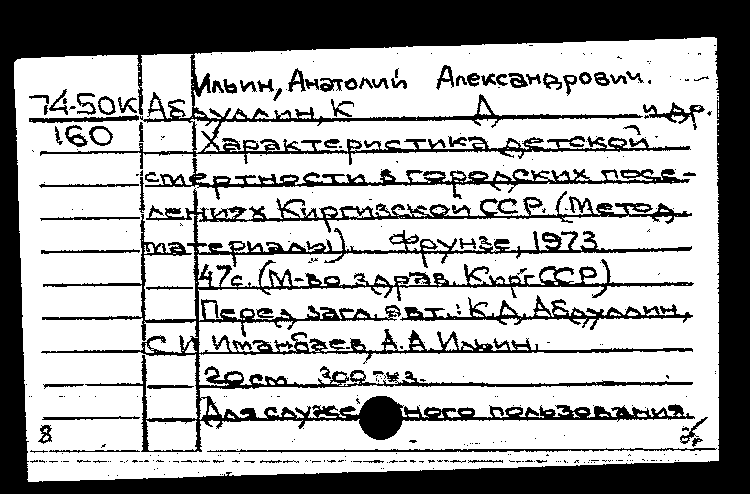 Ильин, Анатолий Александрович.
74-50К Абдуллин, К Д и др.
160 Характеристика детской
смертности в городских посе-
лениях Киргизской ССР. (Метод.
материалы). Фрунзе, 1973.
47с. (М-во здрав. Кирг ССР)
Перед загл. авт.: К.Д. Абдуллин,
С И Иманбаев, А.А. Ильин.
20см. 300 экз.
Для служебного пользования.
8